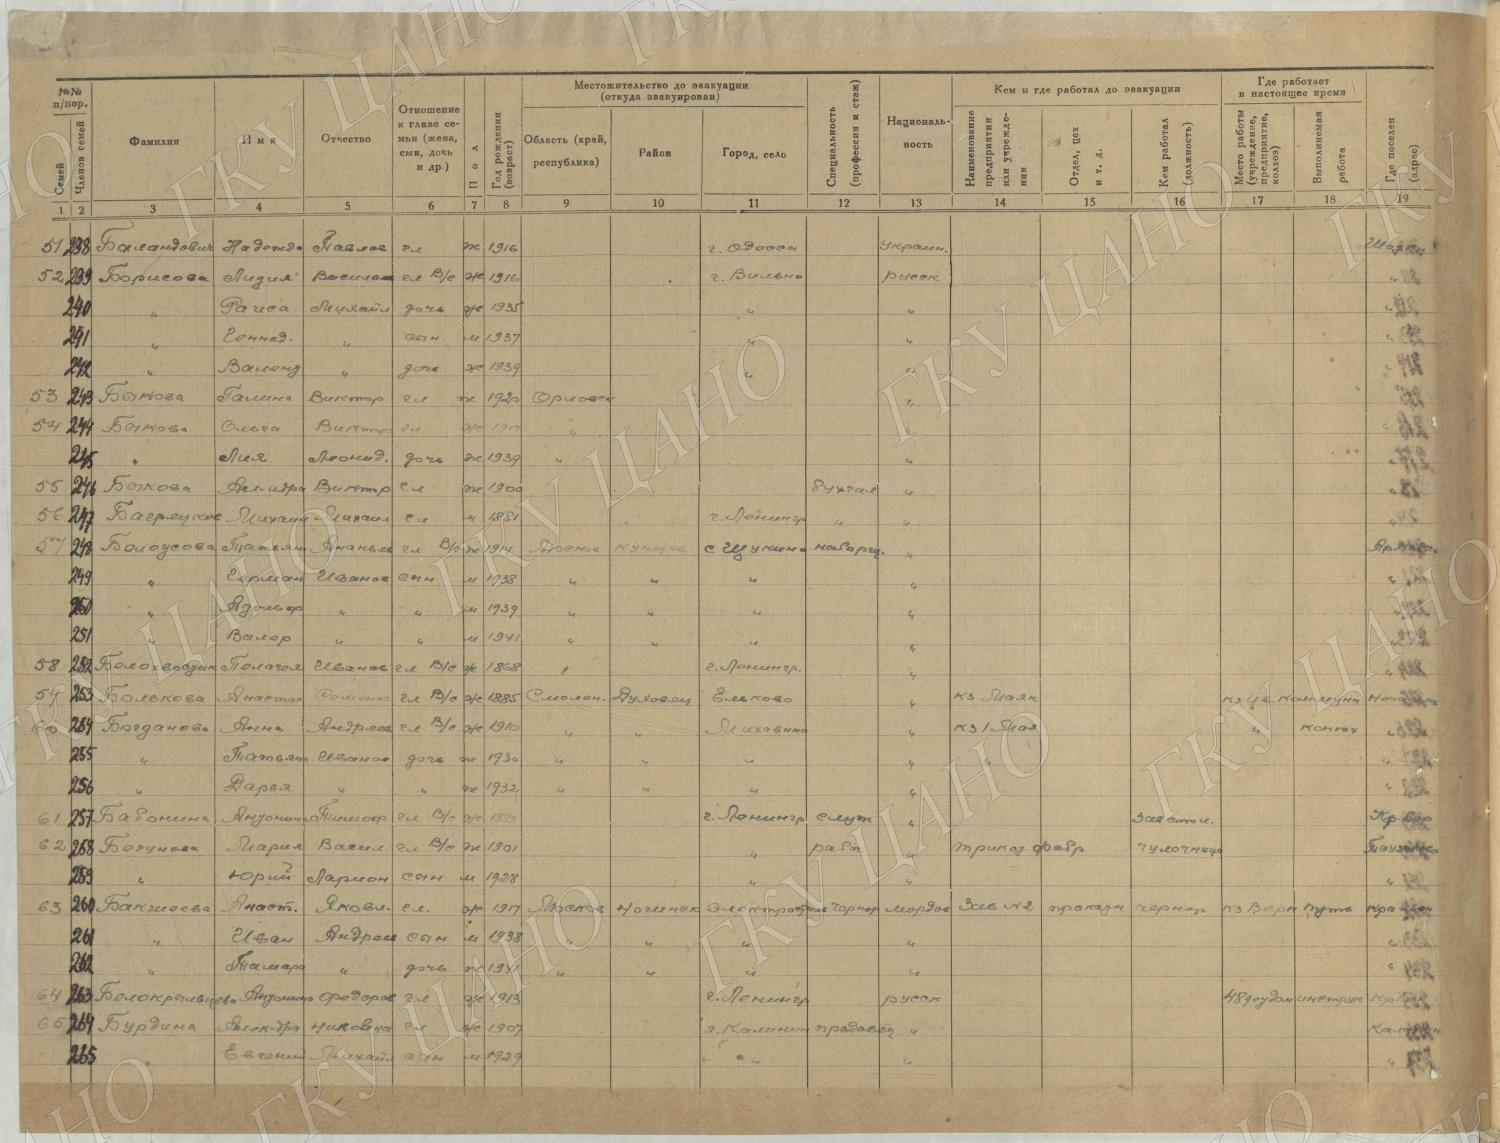 №№ п/пор.
Семей
Членов семей
Фамилия
Имя
Отчество
Отношение к главе семьи (жена, сын, дочь и др.)
Пол
Год рождения (возраст)
Местожительство до эвакуации (откуда эвакуирован)
Область (край, республика)
Район
Город, село
Специальность (профессия и стаж)
Националь-ность
Кем и где работал до эвакуации
Наименование предприятия или учрежде-ния
Отдел, цех и т. д.
Кем работал (должность)
Где работает в настоящее время
Место работы (учреждение, предприятие, колхоз)
Выполняемая работа
Где поселен (адрес)
1 2 3 4 5 6 7 8 9 10 11 12 13 14 15 16 17 18 19
51 238 Баландович Надежда Павлов гл ж 1916 г. Одесса украин.
52 239 Борисова Лидия Василье гл В/с ж 1916 г. Вильно русск "
240 " Раиса Михайл дочь ж 1935 " " "
241 " Геннад. " сын м 1937 " " "
242 " Валенд " дочь ж 1939 " " "
53 243 Быкова Галина Виктор гл ж 1920 Орловск " "
54 244 Быкова Ольга Виктор гл ж " " "
245 " Лия Леонид. дочь ж 1939 " " "
55 246 Быкова Виктор гл ж 1900 бухгал " "
56 247 Михаил Михаил гл м 1881 г. Ленингр " " "
57 248 Белоусова Татьян Ананьев гл В/с ж 1914 Москов кунцев с Щукино наборщ. "
249 " Герман Иванов сын м 1938 " " " " "
250 " Адольф " " м 1939 " " " " "
251 " Валер " " м 1941 " " " " "
58 252 Белохвостик Пелагея Иванов гл В/с ж 1868 г. Ленингр. " "
59 253 Болькова Анастас Семенов гл В/с ж 1885 Смолен. Духовец Ельково " кз Маяк кз Цв. коммуны
60 254 Богданова Анна Андреев гл В/с ж 1910 " " Михавино " кз 1 Мая " конюх "
255 " Татьяна Иванов дочь ж 1930 " " " " " "
256 " Дарья " " ж 1932 " " " " "
61 257 Бабонина Антонина Тимоф гл В/с ж г. Ленингр служ " Завстол. Кр. Бор
62 258 Богунова Мария Васил гл В/с ж 1901 " рабоч " трикот фабр чулочница
259 " Юрий Ларион сын м 1928 " " "
63 260 Бакшеева Анаст. Яковл. гл. ж 1917 Москов Ногинск Электросталь чернор мордов Зав №2 прокатн чернор кз Верн путь
261 " Иван Андреев сын м 1938 " " " " "
262 " Тамара " дочь ж 1941 " " " " "
64 263 Белокрыльцева Антонина Федоров гл ж 1913 г. Ленингр русск 48 детдом инструк
65 264 Бурдина Алек-дра никовна гл ж 1907 г. Калинин продавец "
265 " Евгений Михайл сын м 1929 " " " "
ГКУ ЦАНО